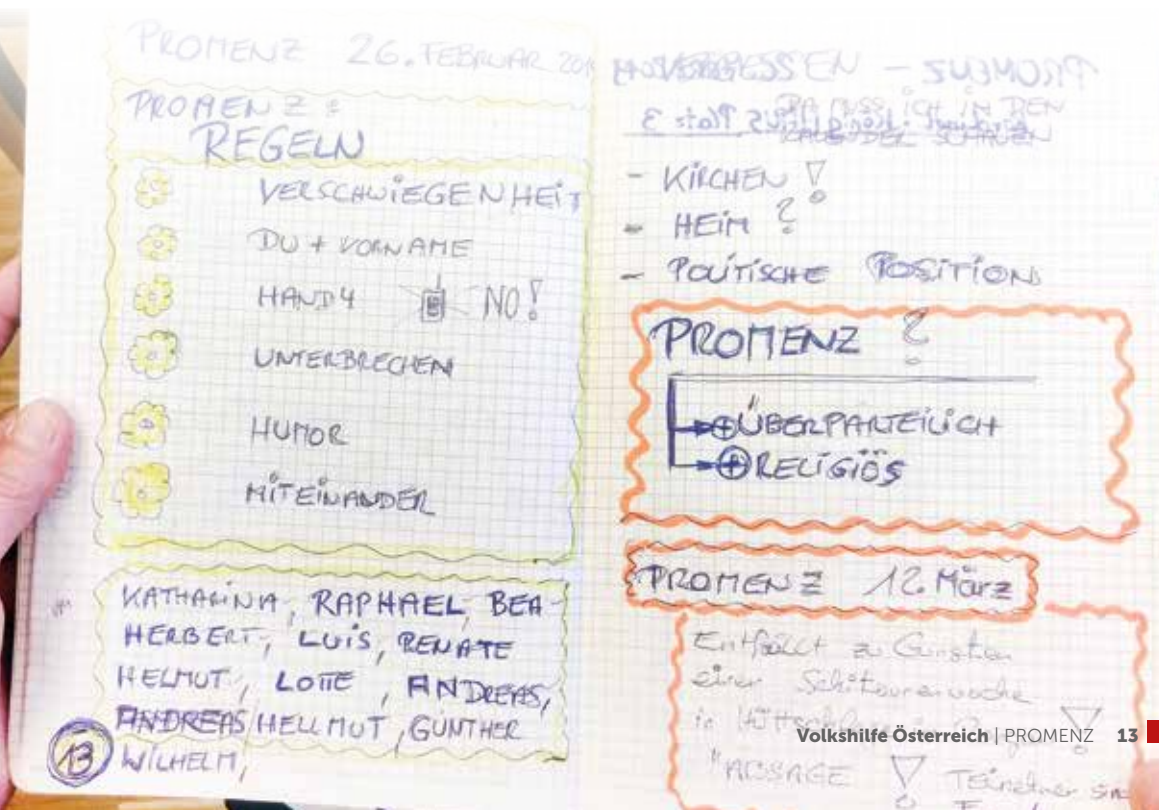 PROMENZ 26. FEBRUAR 201
PROMENZ:
REGELN
VERSCHWIEGENHEIT
DU + VORNAME
HANDY NO!
UNTERBRECHEN
HUMOR
MITEINANDER
KATHARINA, RAPHAEL, BEA
HERBERT, LUIS, RENATE
HELMUT, LOTTE, ANDREAS,
ANDREAS/HELLMUT, GÜNTHER
13 WILHELM,
VERGESSEN – PROMENZ
DA MUSS ICH IN DEN
KALENDER SCHAUEN
- KIRCHEN!
- HEIM?
- POLITISCHE POSITION
PROMENZ?
ÜBERPARTEILICH
RELIGIÖS
PROMENZ 12. März
Entfällt zu Gunsten
einer Schitourenwoche
in
Volkshilfe Österreich | PROMENZ 13
"ABSAGE! Teilnehmer sin